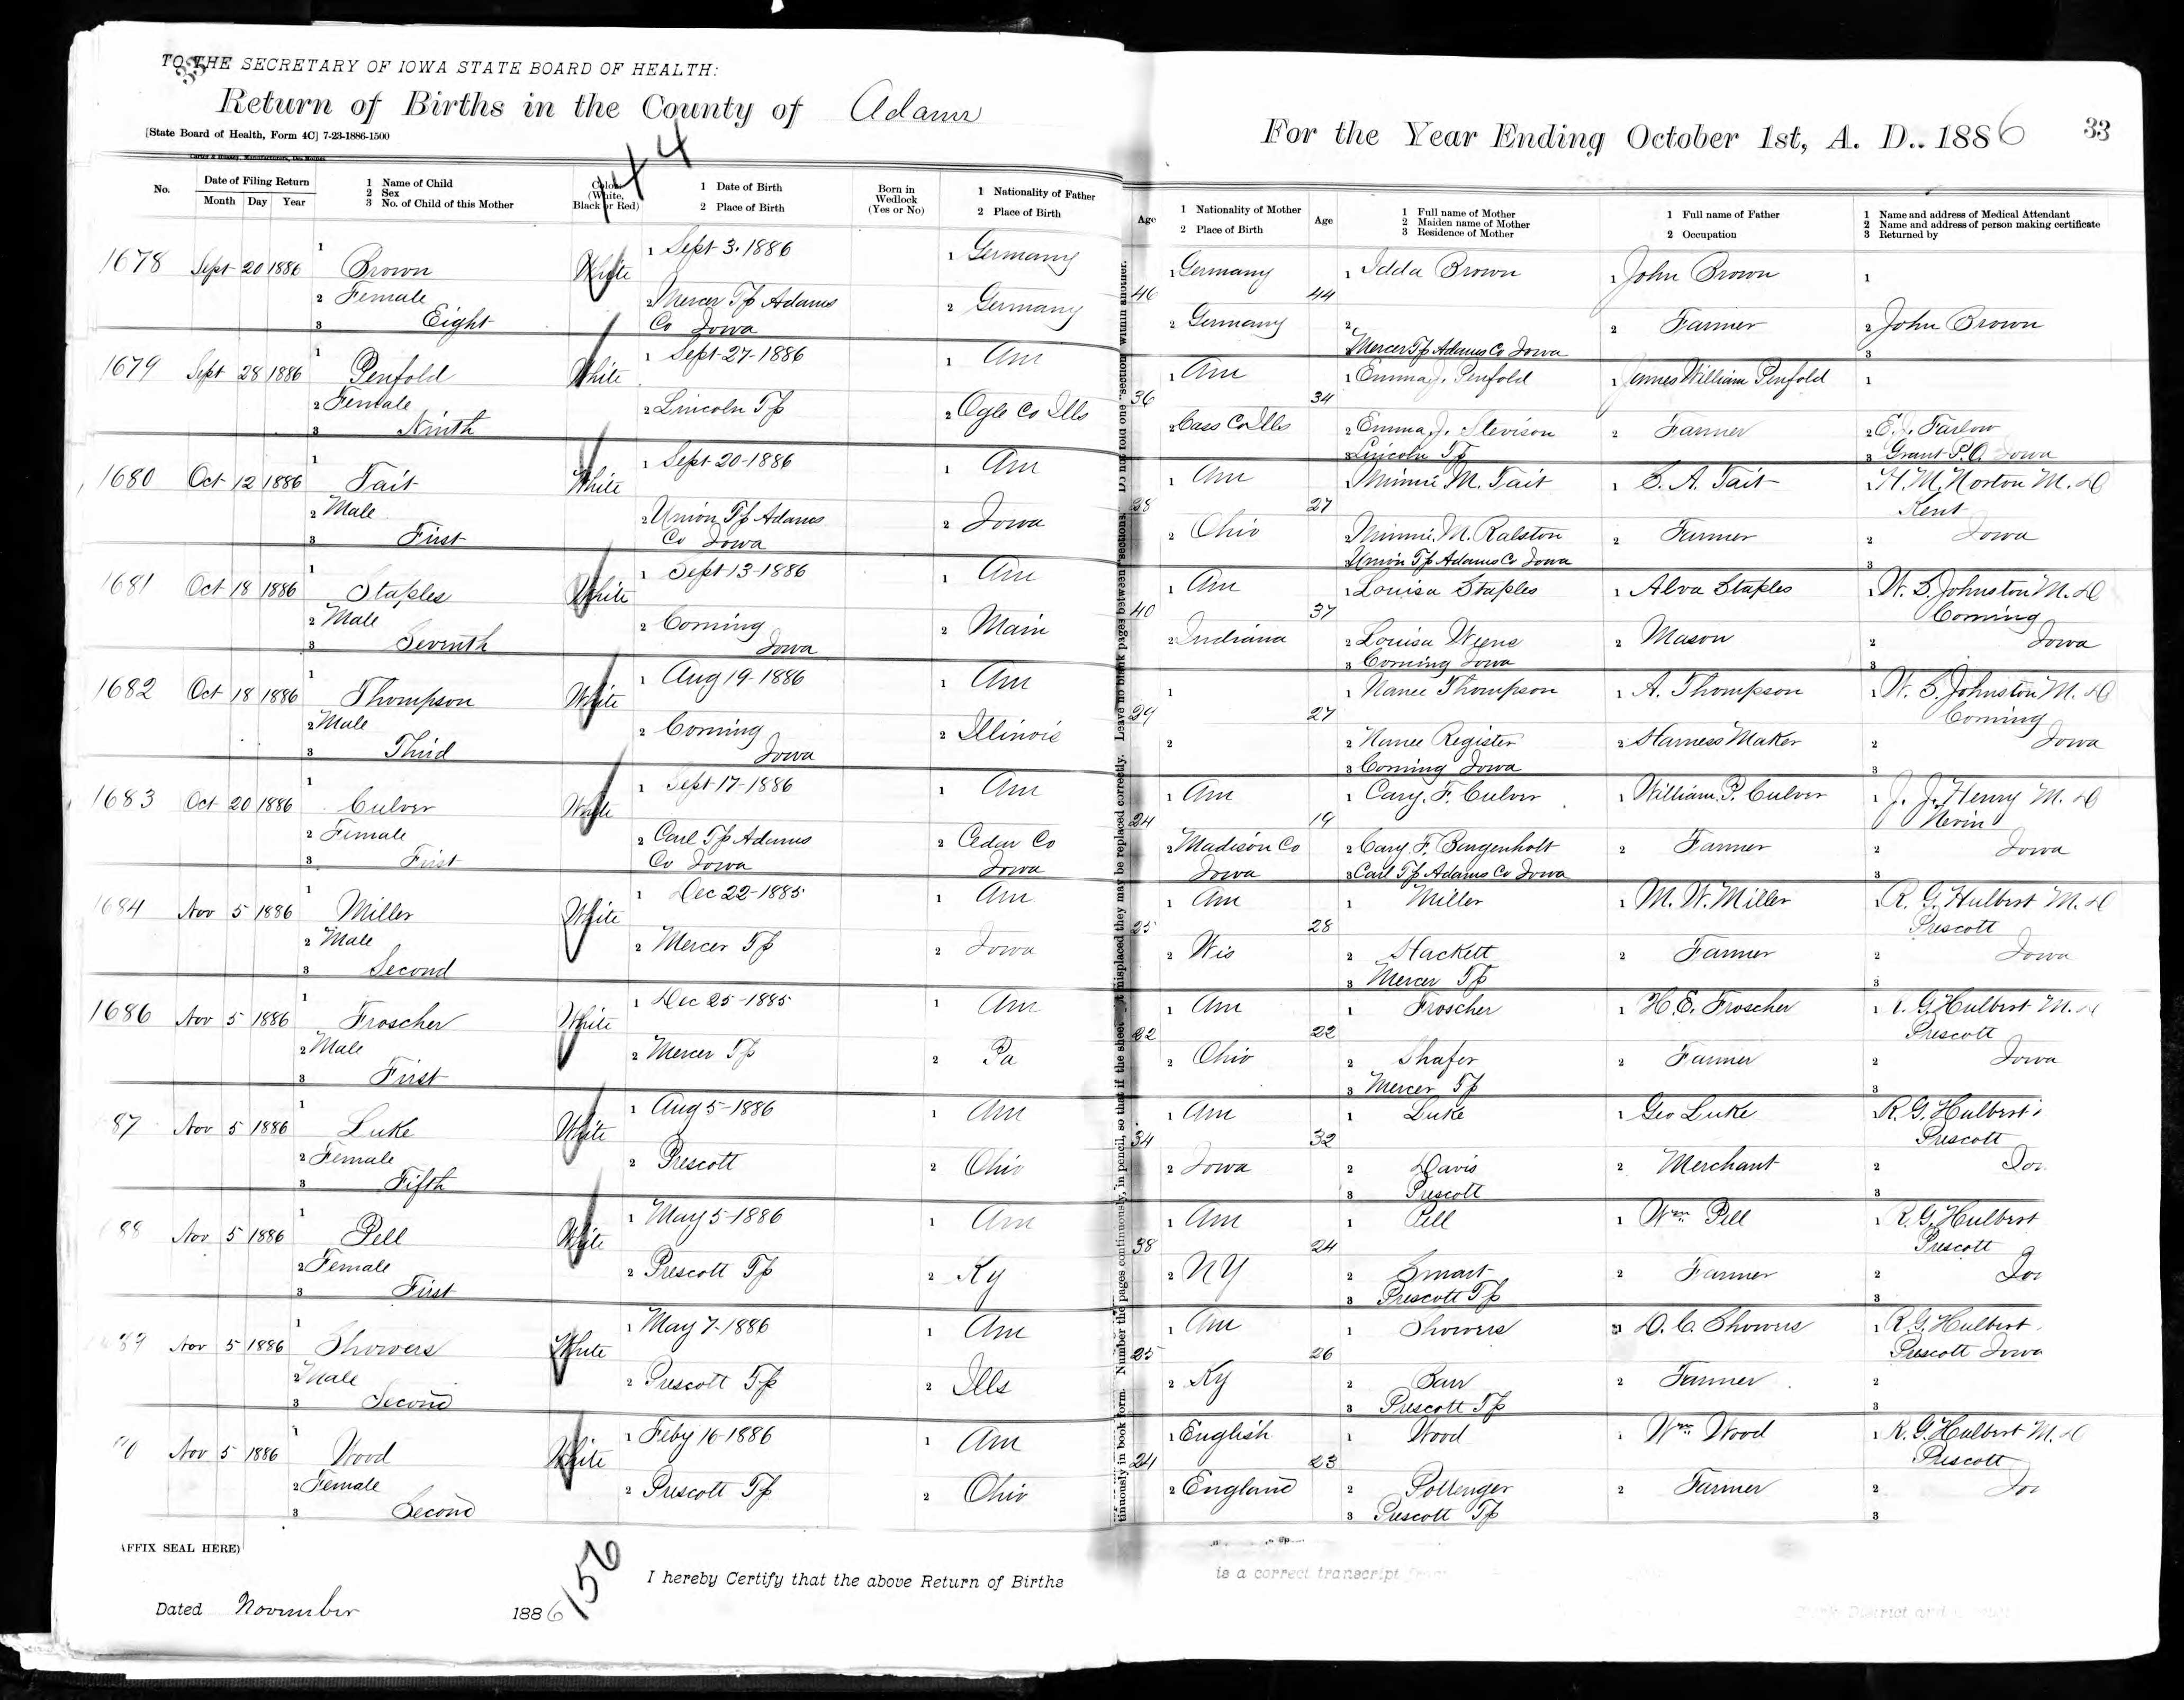 TO THE SECRETARY OF IOWA STATE BOARD OF HEALTH:
33
Return of Births in the County of Adams
[State Board of Health, Form 4C] 7-23-1886-1500
144
For the Year Ending October 1st, A. D.. 1886
33
No.
Date of Filing Return
Month Day Year
1 Name of Child
2 Sex
3 No. of Child of this Mother
Color (White, Black or Red)
1 Date of Birth
2 Place of Birth
Born in Wedlock (Yes or No)
1 Nationality of Father
2 Place of Birth
Age
1 Nationality of Mother
2 Place of Birth
Age
1 Full name of Mother
2 Maiden name of Mother
3 Residence of Mother
1 Full name of Father
2 Occupation
1 Name and address of Medical Attendant
2 Name and address of person making certificate
3 Returned by
1678 Sept 20 1886 1 Brown White 1 Sept 3. 1886 1 Germany 46 1 Germany 44 1 Idda Brown 1 John Brown 1
2 Female 2 Mercer Tp Adams 2 Germany 2 Germany 2 2 Farmer 2 John Brown
3 Eight Co Iowa Mercer Tp Adams Co Iowa 3
1679 Sept 28 1886 1 Penfold White 1 Sept-27-1886 1 Am 36 1 Am 34 1 Emma J. Penfold 1 James William Penfold 1
2 Female 2 Lincoln Tp 2 Ogle Co Ills 2 Cass Co Ills 2 Emma J. Stevison 2 Farmer 2 E. J. Farlow
3 Ninth 3 Lincoln Tp 3 Grant P.O. Iowa
1680 Oct 12 1886 1 Tait White 1 Sept-20-1886 1 Am 38 1 Am 27 Minnie M. Tait 1 S. A. Tait 1 H. M. Norton M. D
Kent
2 Male 2 Union Tp Adams 2 Iowa 2 Ohio Minnie. M. Ralston 2 Farmer 2 Iowa
3 First Co Iowa Union Tp Adams Co Iowa 3
1681 Oct 18 1886 1 Staples White 1 Sept-13-1886 1 Am 40 1 Am 37 1 Louisa Staples 1 Alva Staples 1 W. S. Johnston M. D
Corning
2 Male 2 Corning 2 Main 2 Indiana 2 Louisa 2 Mason 2 Iowa
3 Seventh Iowa 3 Corning Iowa 3
1682 Oct 18 1886 1 Thompson White 1 Aug 19-1886 1 Am 29 1 27 1 Nanee Thompson 1 A. Thompson 1 W. S. Johnston M. D
Corning
2 Male 2 Corning 2 Illinois 2 2 Nanee Register 2 Harness Maker 2 Iowa
3 Third Iowa 3 Corning Iowa 3
1683 Oct 20 1886 1 Culver White 1 Sept 17-1886 1 Am 24 1 Am 19 1 Cary. F. Culver 1 William. P. Culver 1 J. J. Henry M. D
Nevin
2 Female 2 Carl Tp Adams 2 Cedar Co 2 Madison Co 2 Cary F. 2 Farmer 2 Iowa
3 First Co Iowa Iowa Iowa 3 Carl Tp Adams Co Iowa 3
1684 Nov 5 1886 1 Miller White 1 Dec 22-1885 1 Am 25 1 Am 28 1 Miller 1 M. W. Miller 1 R. G. Hulbert M. D
Prescott
2 Male 2 Mercer Tp 2 Iowa 2 Wis 2 Hackett 2 Farmer 2 Iowa
3 Second 3 Mercer Tp 3
1686 Nov 5 1886 1 Froscher White 1 Dec 25-1885 1 Am 22 1 Am 22 1 Froscher 1 H. E. Froscher 1 . G. Hulbert M.
Prescott
2 Male 2 Mercer Tp 2 Pa 2 Ohio 2 Shafer 2 Farmer 2 Iowa
3 First 3 Mercer Tp 3
87 Nov 5 1886 1 Luke White 1 Aug 5-1886 1 Am 34 1 Am 32 1 Luke 1 Geo Luke R. G. Hulbert
Prescott
2 Female 2 Prescott 2 Ohio 2 Iowa 2 Davis 2 Merchant 2
3 Fifth 3 Prescott 3
88 Nov 5 1886 1 Pell White 1 May 5-1886 1 Am 38 1 Am 24 1 Pell 1 Wm Pell 1 R. G. Hulbert
Prescott
2 Female 2 Prescott Tp 2 Ky 2 NY 2 Smart 2 Farmer 2
3 First 3 Prescott Tp 3
89 Nov 5 1886 1 Showers White 1 May 7-1886 1 Am 25 1 Am 26 1 Showers 1 D. C. Showers 1 R. G. Hulbert
Prescott Iowa
2 Male 2 Prescott Tp 2 Ills 2 Ky 2 Barr 2 Farmer 2
3 Second 3 Prescott Tp 3
Nov 5 1886 1 Wood White 1 Feby 16-1886 1 Am 24 1 English 23 1 Wood 1 Wm Wood 1 R. G. Hulbert M. D
Prescott
2 Female 2 Prescott Tp 2 Ohio 2 England 2 Pottenger 2 Farmer 2
3 Second 3 Prescott Tp 3
AFFIX SEAL HERE)
156
I hereby Certify that the above Return of Births
is a correct transcript
Dated November 1886
District and